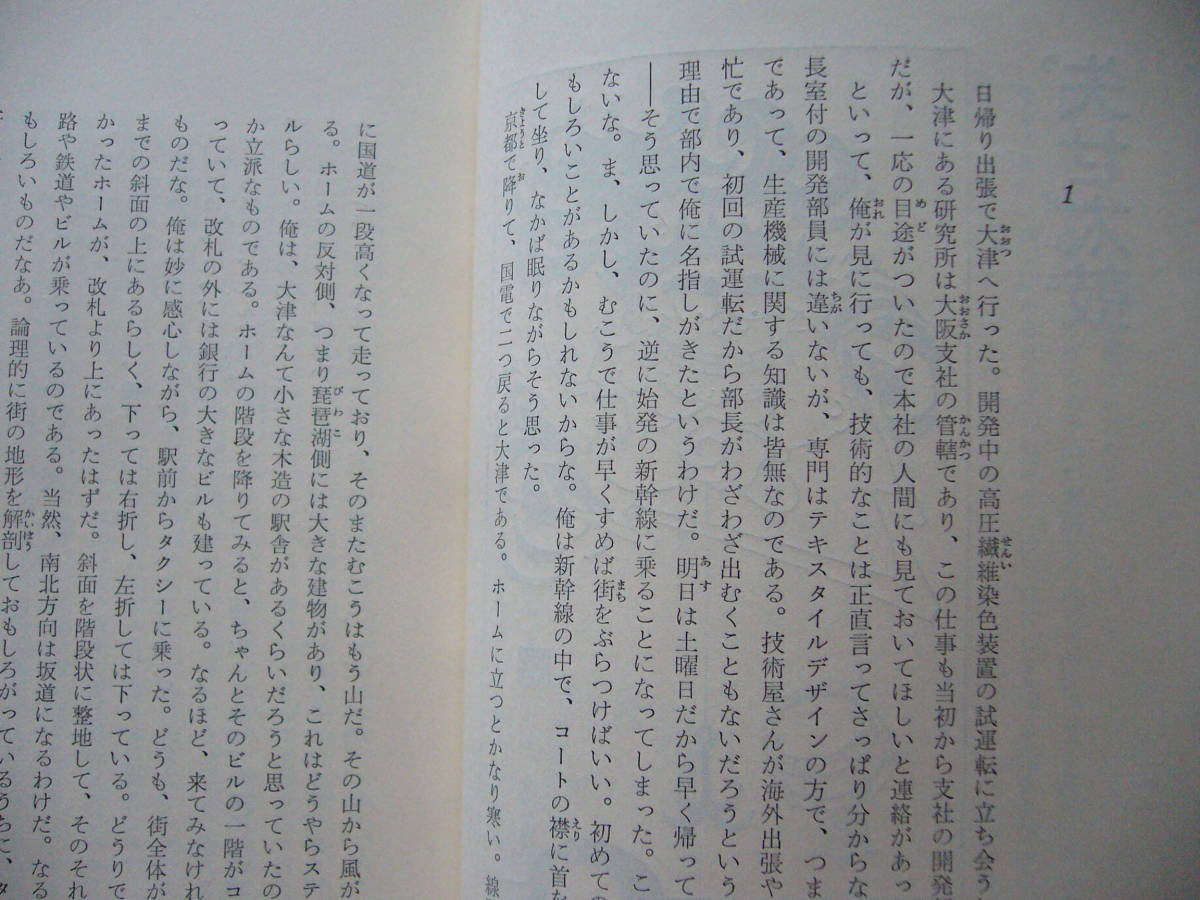 1
日帰り出張で大津へ行った。開発中の高圧繊維染色装置の試運転に立ち会う
大津にある研究所は大阪支社の管轄であり、この仕事も当初から支社の開発
だが、一応の目途がついたので本社の人間にも見ておいてほしいと連絡があっ
といって、俺が見に行っても、技術的なことは正直言ってさっぱり分からな
長室付の開発部員には違いないが、専門はテキスタイルデザインの方で、つま
であって、生産機械に関する知識は皆無なのである。技術屋さんが海外出張や
忙であり、初回の試運転だから部長がわざわざ出むくこともないだろうという
理由で部内で俺に名指しがきたというわけだ。明日は土曜日だから早く帰って
――そう思っていたのに、逆に始発の新幹線に乗ることになってしまった。こ
ないな。ま、しかし、むこうで仕事が早くすめば街をぶらつけばいい。初めての
もしろいことがあるかもしれないからな。俺は新幹線の中で、コートの襟に首を
して坐り、なかば眠りながらそう思った。
京都で降りて、国電で二つ戻ると大津である。ホームに立つとかなり寒い。線
に国道が一段高くなって走っており、そのまたむこうはもう山だ。その山から風が
る。ホームの反対側、つまり琵琶湖側には大きな建物があり、これはどうやらステ
ルらしい。俺は、大津なんて小さな木造の駅舎があるくらいだろうと思っていたの
か立派なものである。ホームの階段を降りてみると、ちゃんとそのビルの一階がコ
っていて、改札の外には銀行の大きなビルも建っている。なるほど、来てみなけれ
ものだな。俺は妙に感心しながら、駅前からタクシーに乗った。どうも、街全体が
までの斜面の上にあるらしく、下っては右折し、左折しては下っている。どうりで
かったホームが、改札より上にあったはずだ。斜面を階段状に整地して、そのそれ
路や鉄道やビルが乗っているのである。当然、南北方向は坂道になるわけだ。なる
もしろいものだなあ。論理的に街の地形を解剖しておもしろがっているうちに、タ